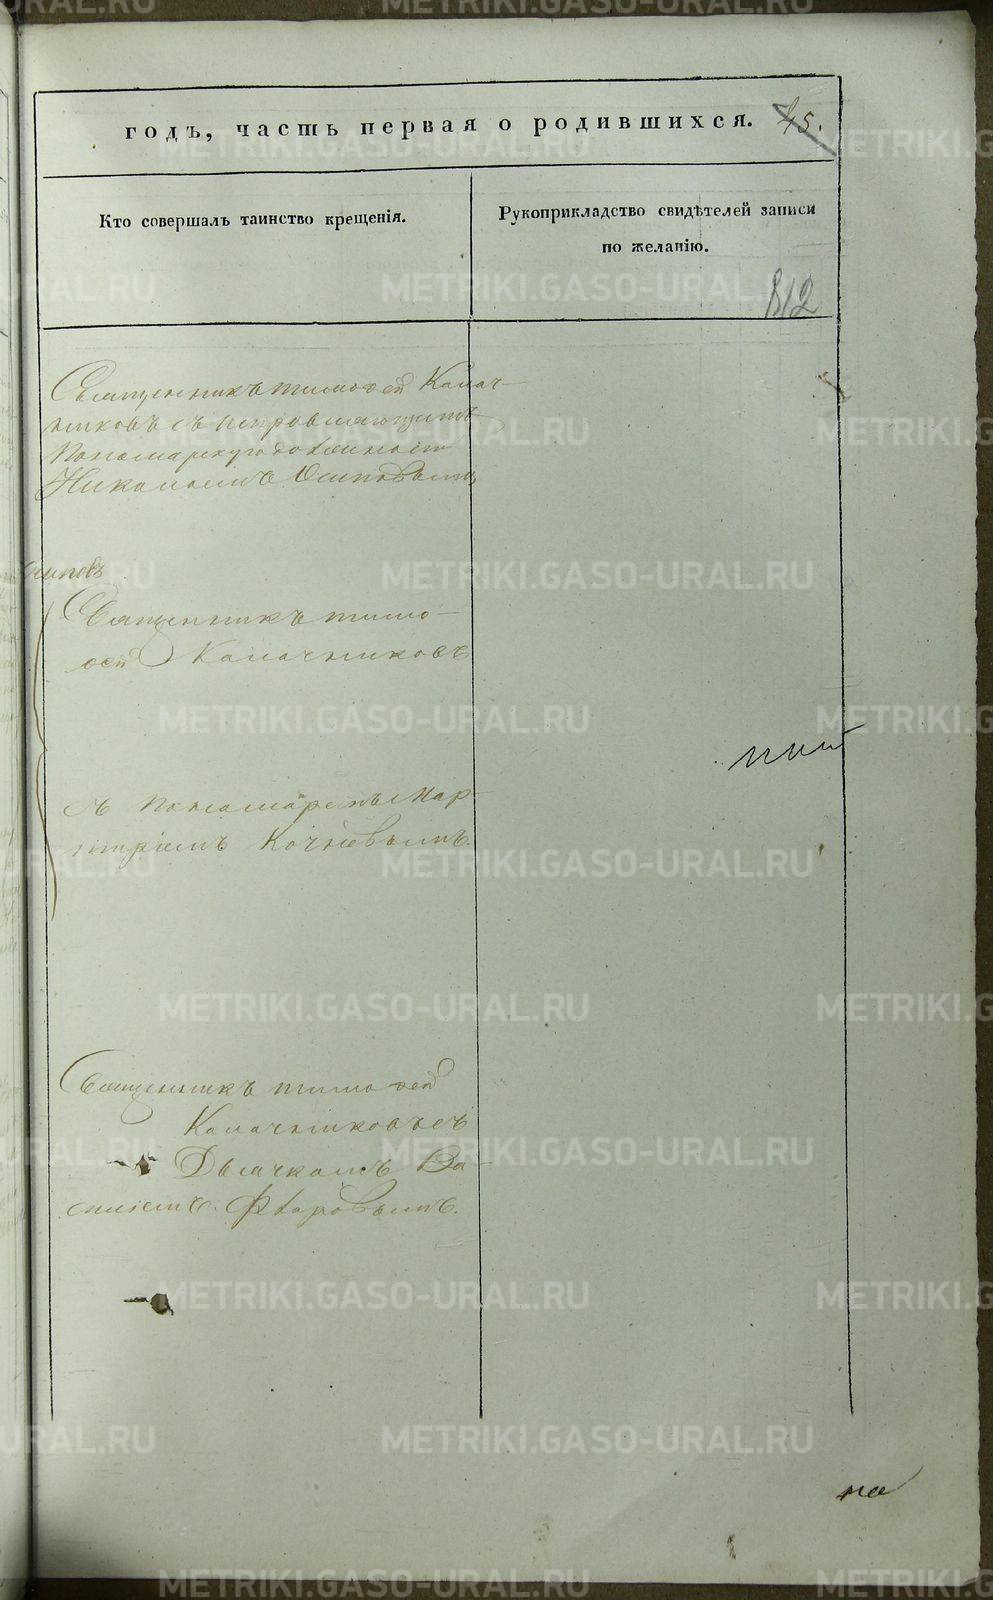 годъ, часть первая о родившихся. 45.
Кто совершалъ таинство крещенія.
Рукоприкладство свидѣтелей записи
по желанію.
812
Священникъ тимофей Калач-
никовъ съ исправляющимъ
Пономарскую должность
Николаемъ Осиповымъ
Осиповъ
Священникъ тимо-
фей Калачниковъ
съ пономаремъ Мар-
Кочневымъ.
Священникъ тимофей
Калачниковъ съ
Дьячкомъ Ва-
силіемъ Федоровымъ.
на
METRIKI.GASO-URAL.RU